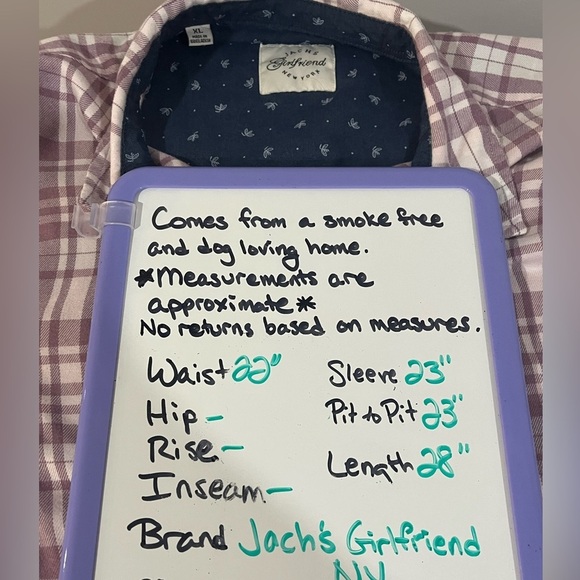 XL
JACHS
Girlfriend
NEW YORK
Comes from a smoke free
and dog loving home.
*Measurements are
approximate*
No returns based on measures.
Waist 22" Sleeve 23"
Hip - Pit to Pit 23"
Rise -
Length 28"
Inseam -
Brand Jach's Girlfriend
NY